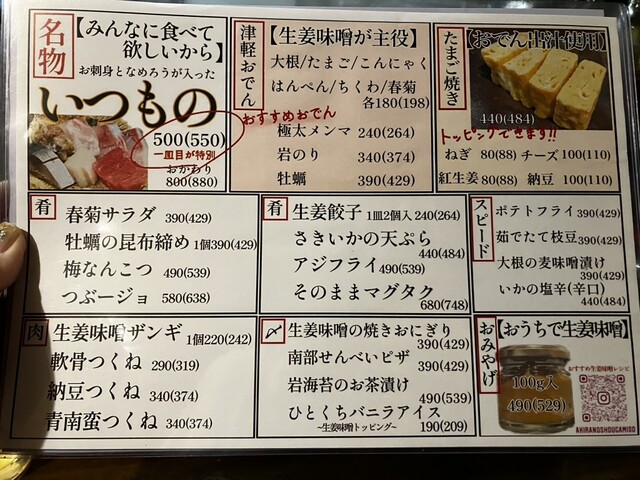 名物
【みんなに食べて
欲しいから】
お刺身となめろうが入った
いつもの
500(550)
一皿目が特別
おかわり
800(880)
津軽おでん
【生姜味噌が主役】
大根/たまご/こんにゃく
はんぺん/ちくわ/春菊
各180(198)
おすすめおでん
極太メンマ 240(264)
岩のり 340(374)
牡蠣 390(429)
たまご焼き
【おでん出汁使用】
440(484)
トッピングできます!!
ねぎ 80(88) チーズ 100(110)
紅生姜 80(88) 納豆 100(110)
肴
春菊サラダ 390(429)
牡蠣の昆布締め 1個390(429)
梅なんこつ 490(539)
つぶージョ 580(638)
肴
生姜餃子 1皿2個入 240(264)
さきいかの天ぷら
440(484)
アジフライ 490(539)
そのままマグタク
680(748)
スピード
ポテトフライ 390(429)
茹でたて枝豆 390(429)
大根の麦味噌漬け
390(429)
いかの塩辛(辛口)
440(484)
肉
生姜味噌ザンギ 1個220(242)
軟骨つくね 290(319)
納豆つくね 340(374)
青南蛮つくね 340(374)
〆
生姜味噌の焼きおにぎり
390(429)
南部せんべいピザ
390(429)
岩海苔のお茶漬け
490(539)
ひとくちバニラアイス
~生姜味噌トッピング~ 190(209)
おみやげ
【おうちで生姜味噌】
100g入
490(529)
おすすめ生姜味噌レシピ
AHIRANOSHOUGAMISO